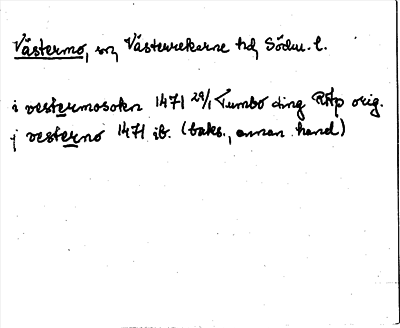 Västermo, sn, Västerrekarne hd, Södm. l.
i vestermosokn 1471 29/1 Tumbo ding RAp orig.
j vesterno 1471 ib. (baks., annan hand)